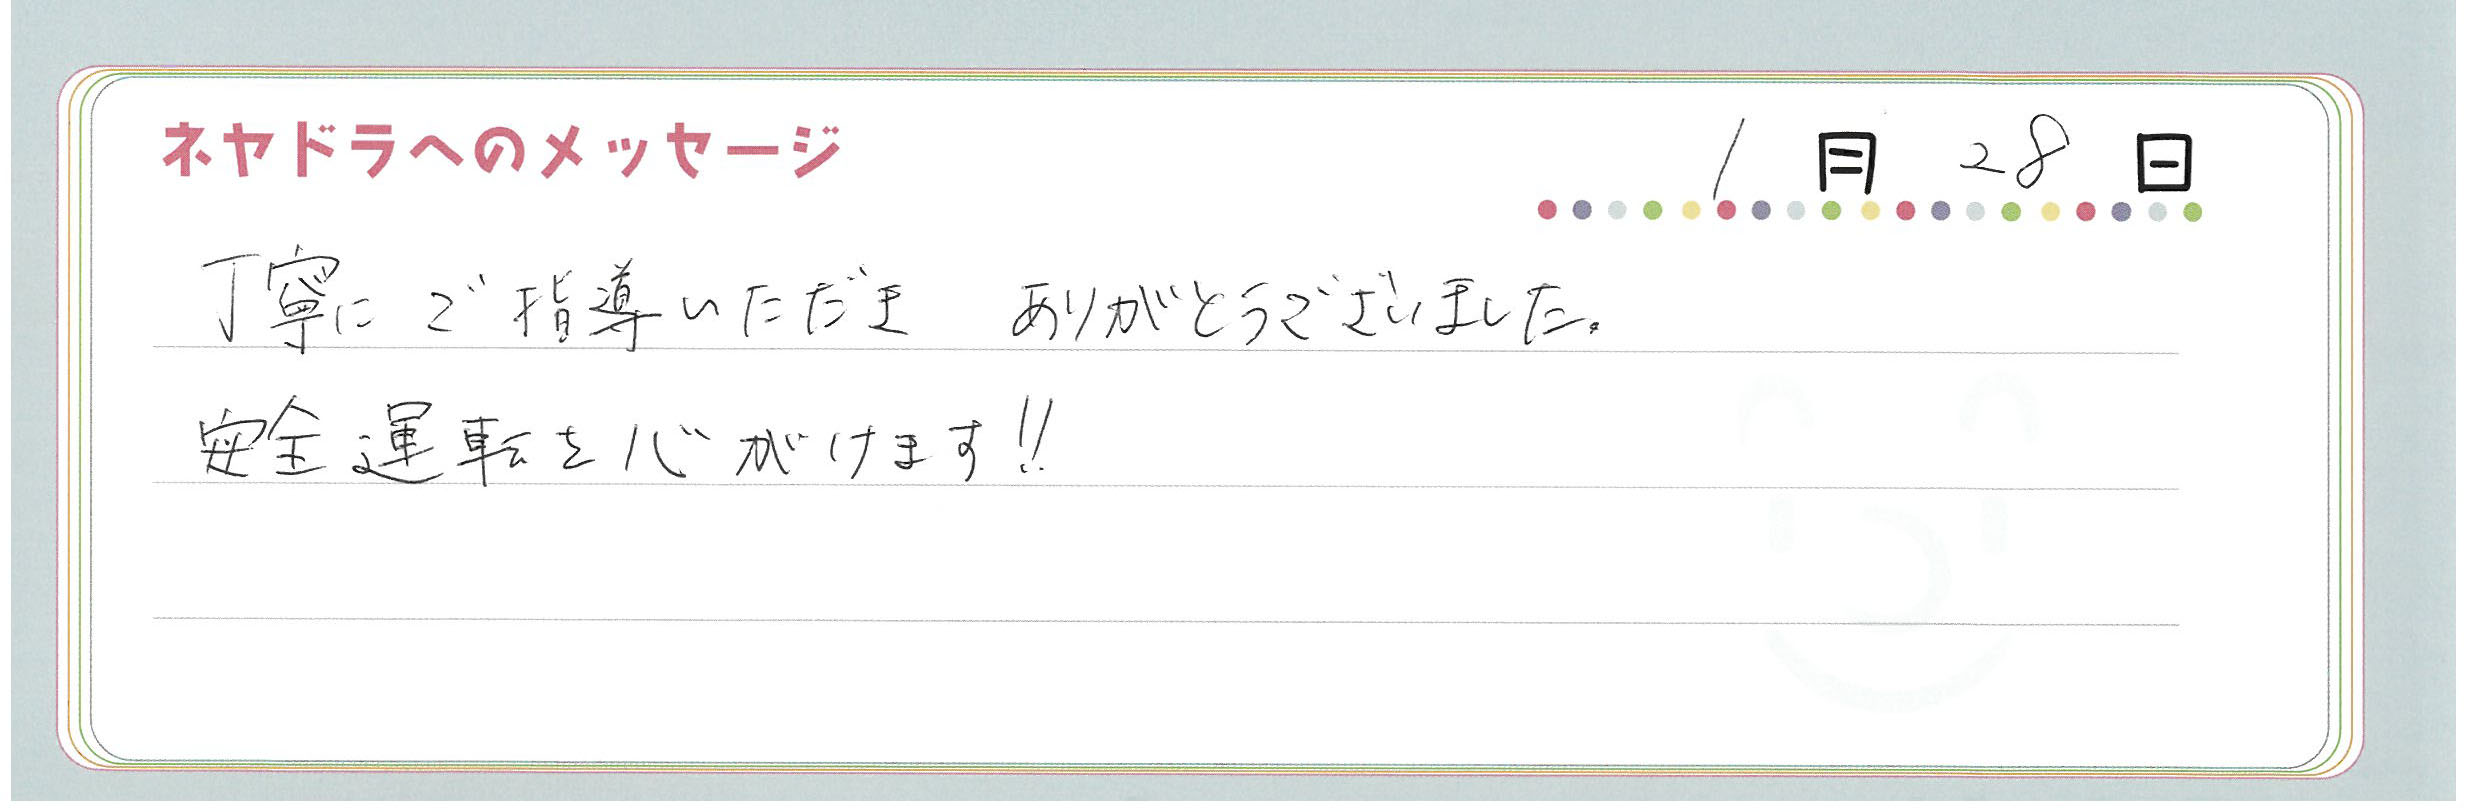 ネヤドラへのメッセージ
1月 28日
丁寧にご指導いただき ありがとうございました。
安全運転を心がけます!!